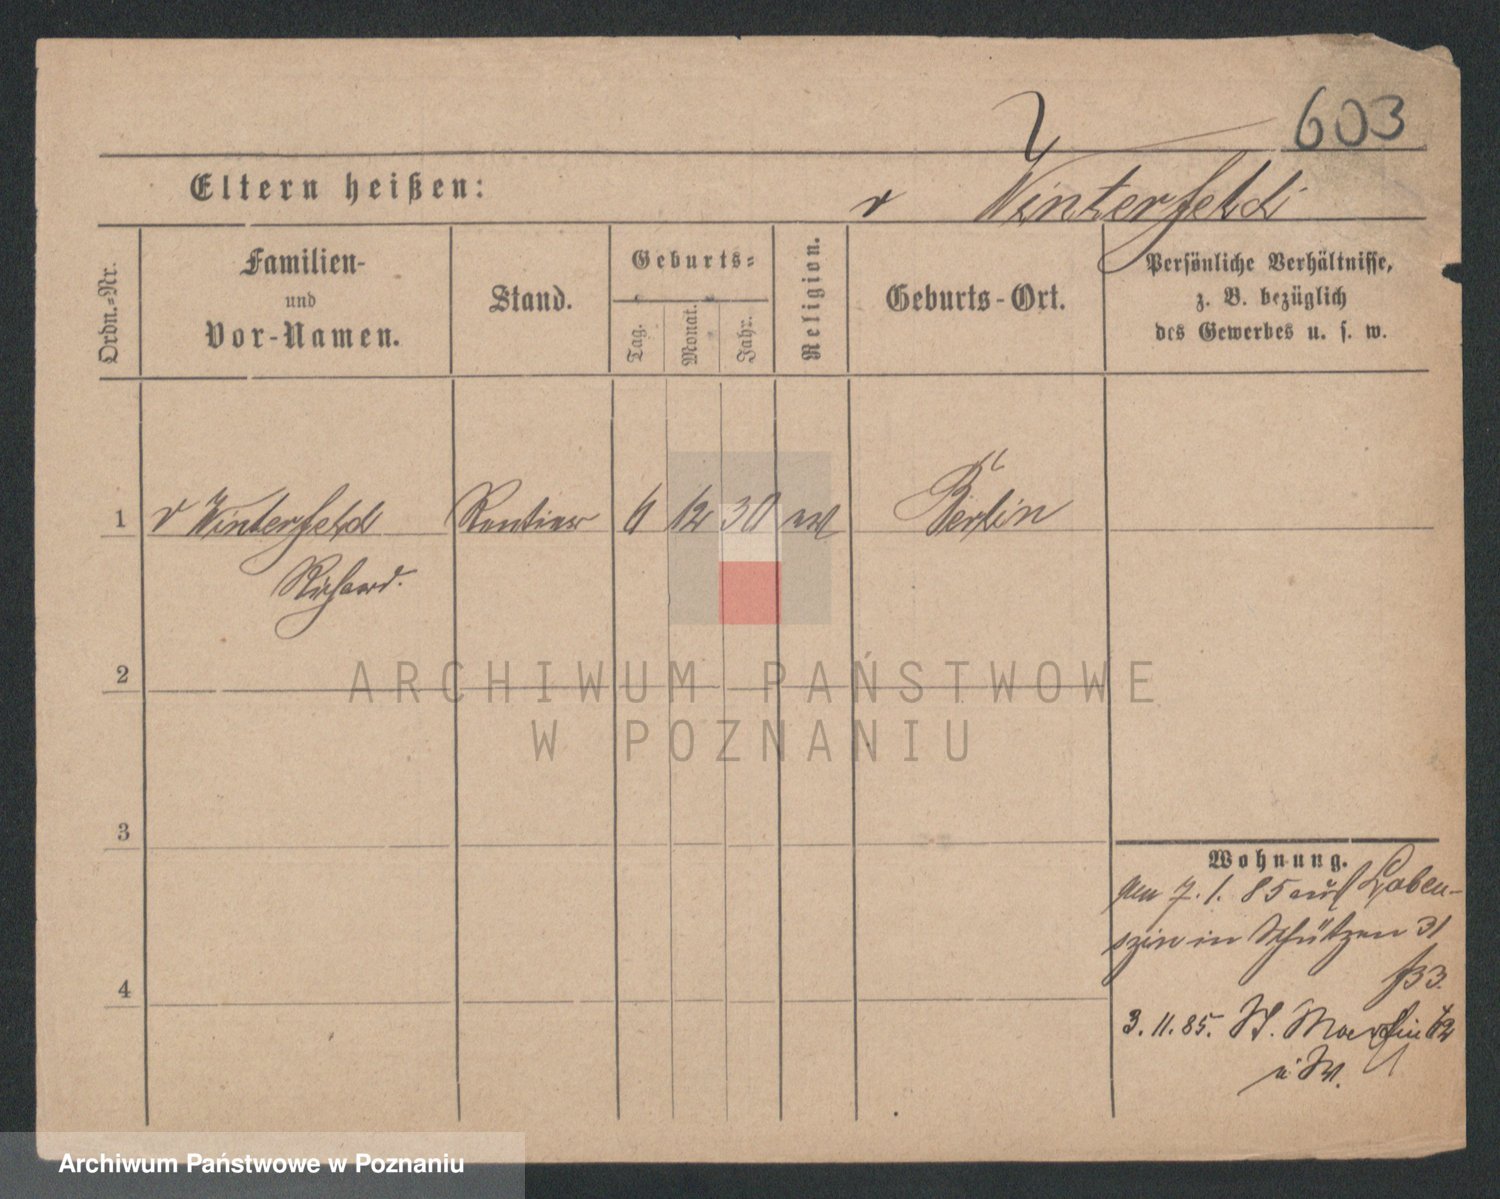 603
Eltern heißen:
v Winterfeld
Ordn.-Nr.
Familien-
und
Vor-Namen.
Stand.
Geburts-
Tag.
Monat.
Jahr.
Religion.
Geburts-Ort.
Persönliche Verhältnisse,
z. B. bezüglich
des Gewerbes u. s. w.
1 v Winterfeld Rentier 6 12 30 ev Berlin
Richard.
2
ARCHIWUM PAŃSTWOWE
W POZNANIU
3
4
Wohnung.
7. 1. 85 auf
in Schützen 31
3. 11. 85. St. Martin
Archiwum Państwowe w Poznaniu